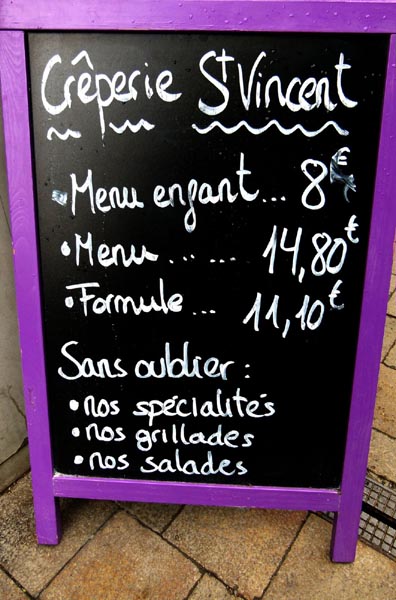 Crêperie St Vincent
• Menu enfant... 8€
• Menu ... ... 14,80€
• Formule ... 11,10€
Sans oublier :
• nos spécialités
• nos grillades
• nos salades